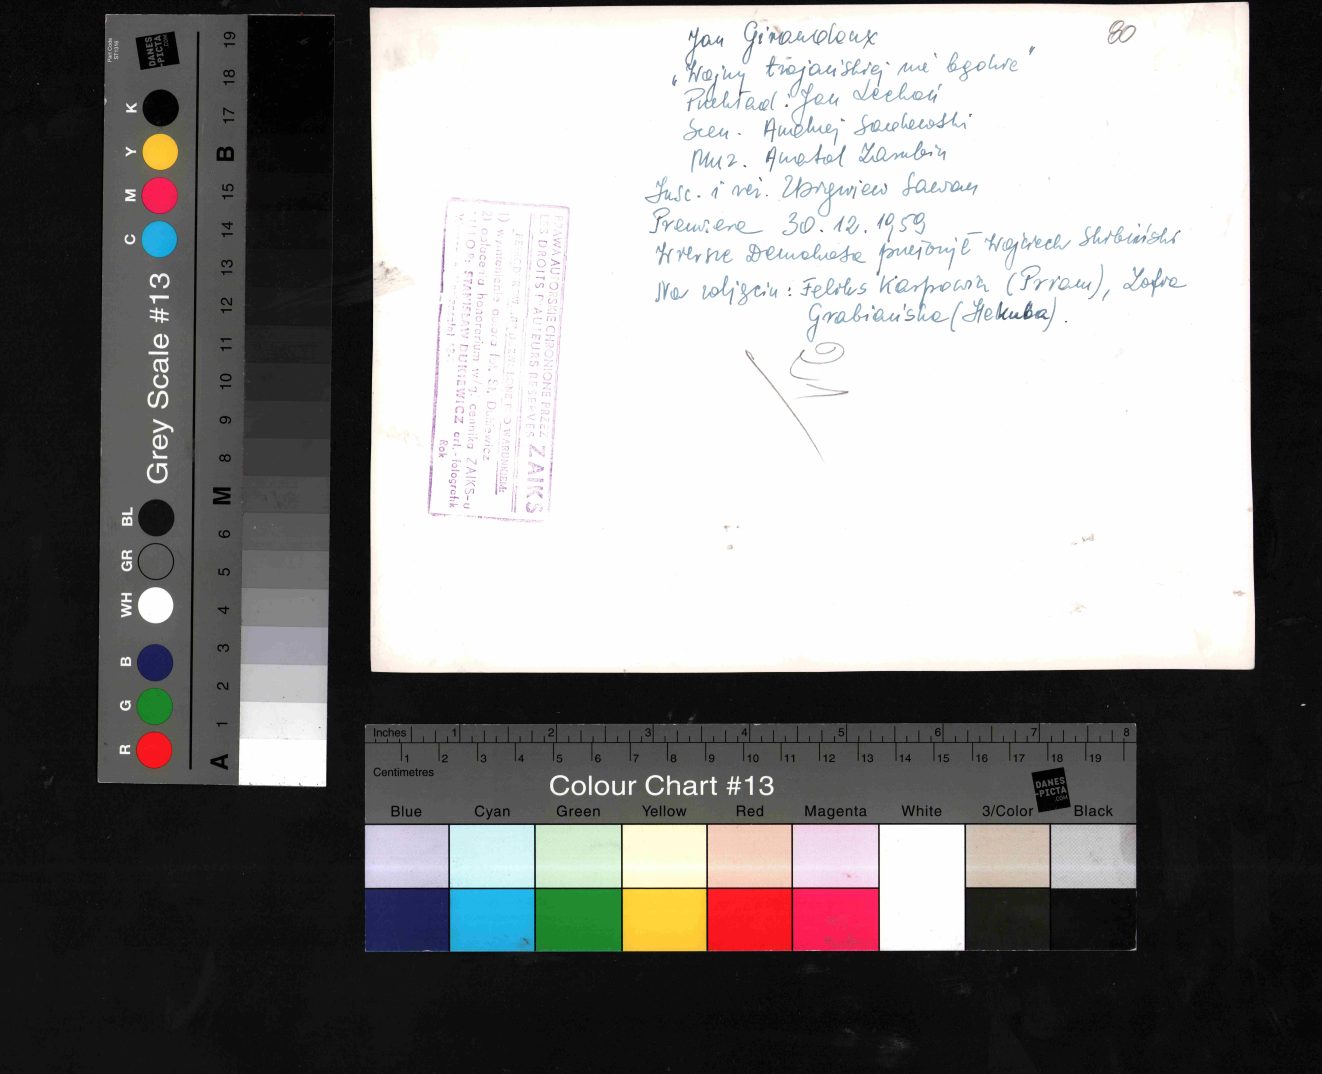 80
Jan Giraudoux
„Wojny trojańskiej nie będzie"
Przekład: Jan Lechoń
Scen. Andrzej Sadowski
Muz. Anatol Zarubin
Insc. i reż. Zbigniew Sawan
Premiera 30.12.1959
Wiersze Demokosa przełożył Wojciech Skibiński
Na zdjęciu: Feliks Karpowicz (Priam), Zofia
Grabiańska (Hekuba).
PRAWA AUTORSKIE CHRONIONE PRZEZ ZAIKS
LES DROITS D'AUTEURS RESERVES
WARUNKIEM:
1) wymienienie autora fot. St. Dukiewicz
2) opłacenia honorarium w/g. cennika ZAIKS-u
FOT. STANISŁAW DUKIEWICZ art.-fotografik
Rok
Part Code
ST1316
DANES
-PICTA
.COM
Grey Scale #13
R G B WH GR BL C M Y K
A 1 2 3 4 5 6 M 8 9 10 11 12 13 14 15 B 17 18 19
Inches 1 2 3 4 5 6 7 8
1 2 3 4 5 6 7 8 9 10 11 12 13 14 15 16 17 18 19
Centimetres
Colour Chart #13
DANES
-PICTA
.COM
Blue Cyan Green Yellow Red Magenta White 3/Color Black